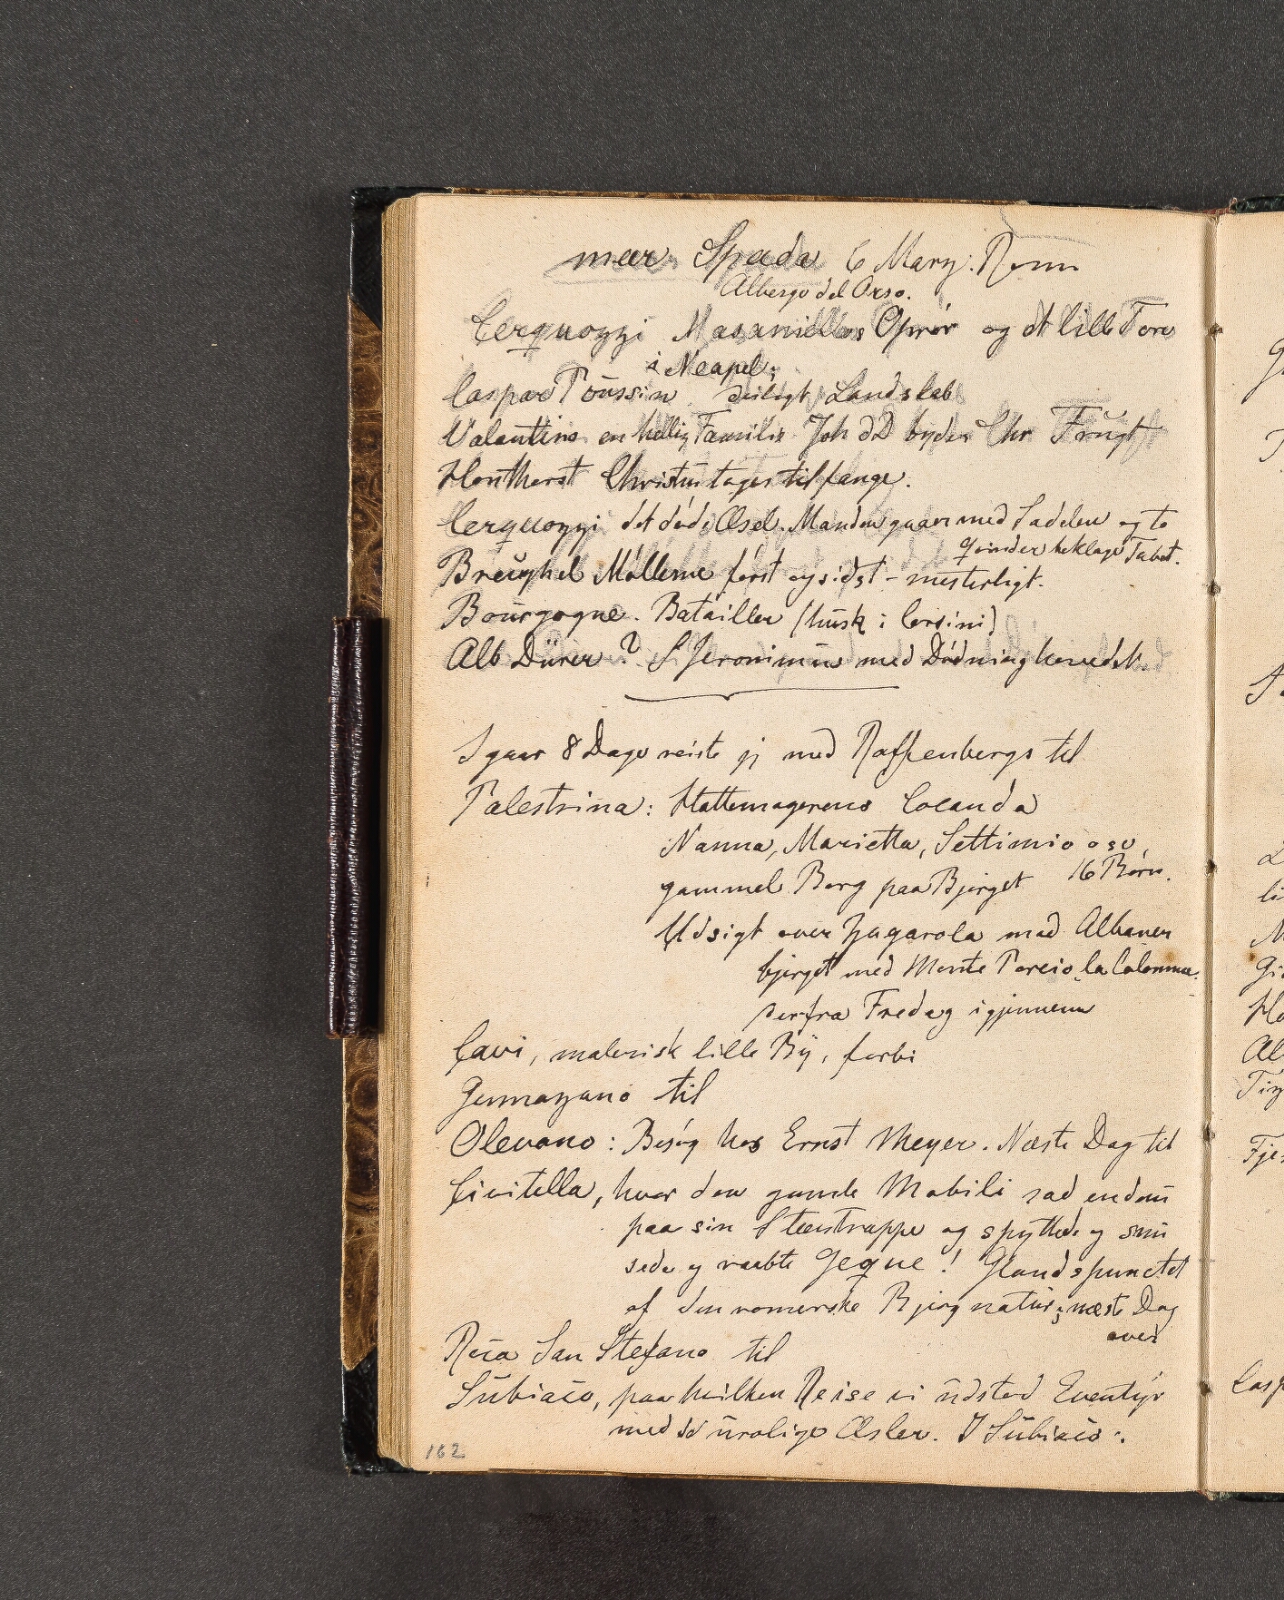 mar. Spada 6 Marz. Rom
Albergo del Orso.
Cerquozzi Masaniellos Oprør og et lille Torv
i Neapel.
Caspar Poussin deiligt Landskab
Valentino en hellig Familie. Joh d D byder Chr Frugt
Honthorst Christus tages tilfange.
Cerquozzi det døde Æsel. Manden gaaer med Sadelen og to
Qvinder beklage Tabet.
Breughel Møllerne først og sidst - mesterligt.
Bourgogne. Batailler (husk i Corsini)
Alb Dürer? S Jeronimus med Dødninghovedet.
I gaar 8 Dage reiste jeg med Raffenbergs til
Palestrina: Hattemagerens Locanda
Nanna, Marietta, Settimio osv.
16 Børn.
gammel Borg paa Bjerget
Udsigt over Zagarola med Albaner
bjerget med Monte Porcio, la Colonna.
derfra Fredag igjennem
Cavi, malerisk lille By, forbi
Gennazano til
Olevano: Besøg hos Ernst Meyer. Næste Dag til
Civitella, hvor den gamle Mobili sad endnu
paa sin Steentrappe og spyttede og snu
sede og raabte Jeque! Glandspunctet
af den romerske Bjergnatur; næste Dag
over
Roca San Stefano til
Subiaco, paa hvilken Reise vi udstod Eventyr
med de urolige Æsler. I Subiaco:.
162